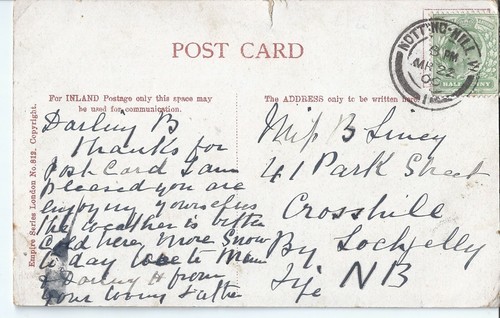 POST CARD
NOTTING-HILL W
HALFPENNY
For INLAND Postage only this space may
be used for communication.
The ADDRESS only to be written here.
Empire Series London No. 812. Copyright.
Darling B
Thanks for
Post Card I am
pleased you are
enjoying yourselves
the weather is bitter
cold here more Snow
to day love to Mam
& Darling H from
your loving Father
Miss B
41 Park Street
Crosshill
By Lochgelly
Fife NB